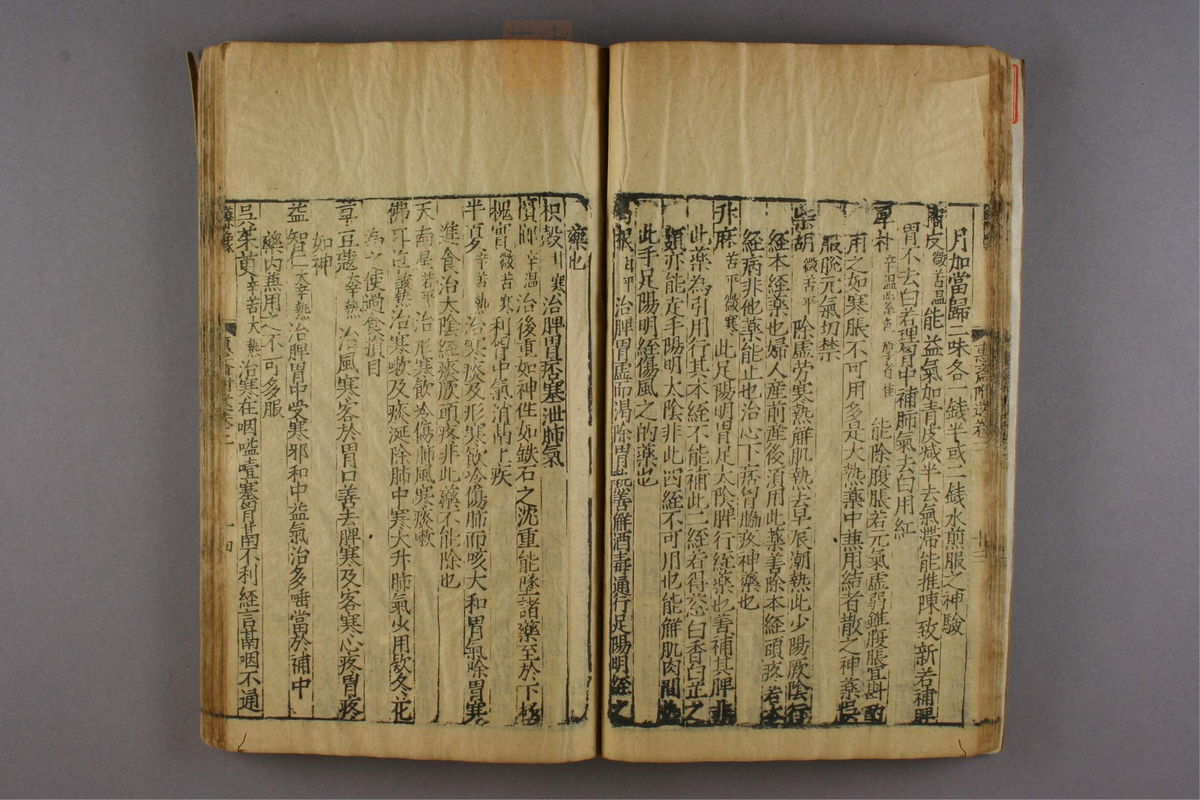 月加當歸二味各一錢半或二錢水煎服之神驗
青皮微苦溫能益氣加青皮减半去氣滯能推陳致新若補脾
胃不去白若理胷中補肺氣去白用紅
厚朴辛溫能除腹脹若元氣虛弱雖腹脹宜斟酌
用之如寒脹不可用多是大熱藥中兼用結者散之神藥
服脫元氣切禁
柴胡微苦平除虛勞寒熱解肌熱去早辰潮熱此少陽厥陰行
經本經藥也婦人產前產後須用此藥善除本經頭疼若本
經病非他藥能止也治心下痞胷膈疼神藥也
升麻苦平微寒此足陽明胃足太陰脾行經藥也善補其脾非
此藥為引用行其本經不能補此二經若得葱白香白芷之
類亦能走手陽明太陰非此四經不可用也能解肌肉間
此手足陽明經傷風之的藥也
葛根甘平治脾胃虛而渴除胃熱善解酒毒通行足陽明經之
藥也
枳殼寒治脾胃痞塞泄肺氣
辛溫治後重如神性如鉄石之沉重能墜諸藥至於下極
枳實微苦寒利胷中氣消痞上疾
半夏辛苦熱治寒痰及形寒飲冷傷肺而咳大和胃氣除胃寒
進食治太陰經痰厥頭疼非此藥不能除也
天南星苦平治形寒飲冷傷肺風寒痰嗽
佛耳草熱治寒嗽及痰涎除肺中寒大升肺氣少用欵冬花
為之使過食損目
草豆蔻大辛熱治風寒客於胃口善去脾寒及客寒心疼胃疼
如神
益智仁大辛熱治脾胃中受寒邪和中益氣治多唾當於補中
藥內兼用之不可多服
吳茱萸辛苦大熱治寒在咽嗌噎塞胷中不利經言咽不通